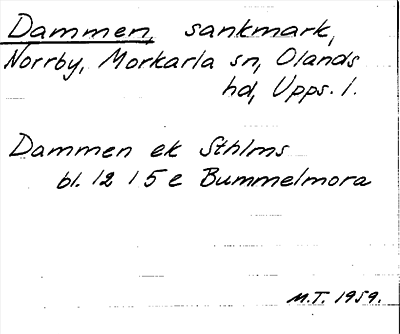 Dammen, sankmark,
Norrby, Morkarla sn, Olands
hd, Upps. l.
Dammen ek Sthlms
bl. 12 I 5 e Bummelmora
M.T. 1959.